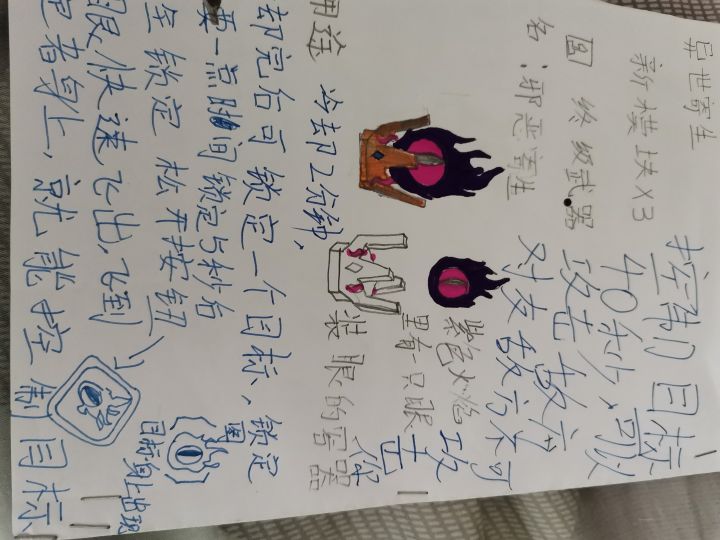 异世寄生
新模块X3
图 终级武器
名:邪恶寄生
紫色火焰
里有一只眼
装眼的容器
用途 冷却2分钟,
却完后可锁定一个目标,锁定
要一点时间锁定5秒后
至锁定 松开按钮
眼快速飞出,飞到
定者身上,就能控制目标
目标身上出现
控制目标
40秒,可以
攻击敌方
对友敌方不可
攻击你